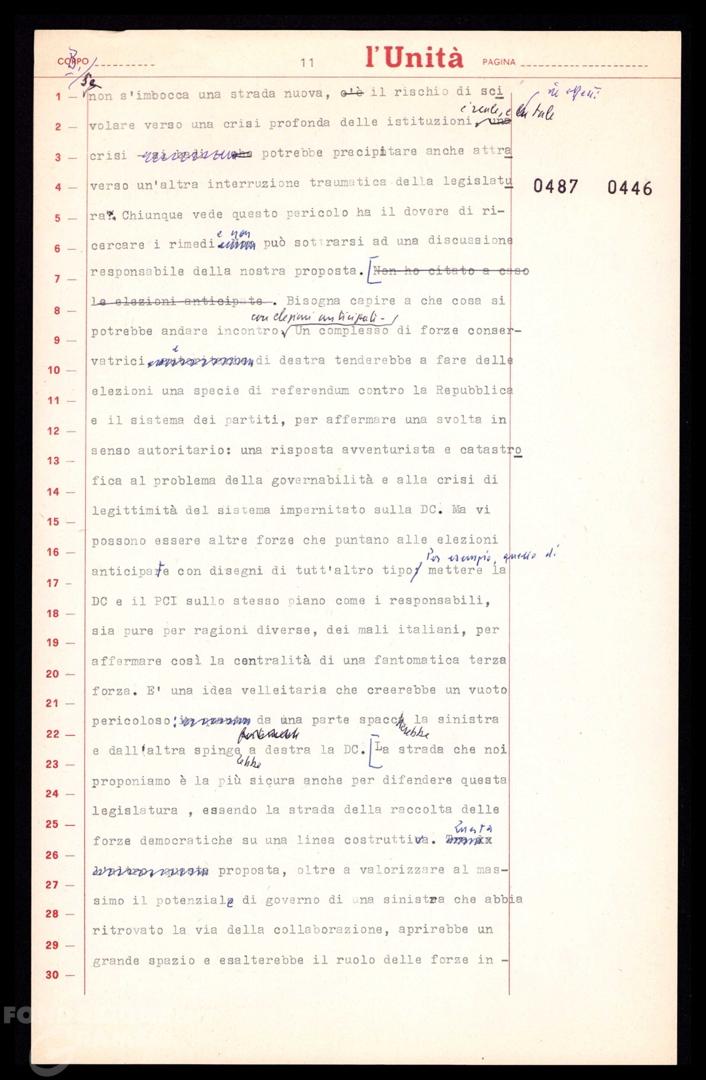 CORPO 11 l'Unità PAGINA
B. / 5a
1 — non s'imbocca una strada nuova, c'è il rischio di sci
2 — volare verso una crisi profonda delle istituzioni, una
3 — crisi potrebbe precipitare anche attra
4 — verso un'altra interruzione traumatica della legislatu
0487 0446
5 — ra". Chiunque vede questo pericolo ha il dovere di ri-
e non
6 — cercare i rimedi può sottrarsi ad una discussione
7 — responsabile della nostra proposta. [Non ho citato a caso
8 — le elezioni anticipate . Bisogna capire a che cosa si
con elezioni anticipate -
9 — potrebbe andare incontro. Un complesso di forze conser-
e
10 — vatrici di destra tenderebbe a fare delle
11 — elezioni una specie di referendum contro la Repubblica
12 — e il sistema dei partiti, per affermare una svolta in
13 — senso autoritario: una risposta avventurista e catastro
14 — fica al problema della governabilità e alla crisi di
15 — legittimità del sistema impernitato sulla DC. Ma vi
16 — possono essere altre forze che puntano alle elezioni
Per esempio, quello di
17 — anticipate con disegni di tutt'altro tipo, mettere la
18 — DC e il PCI sullo stesso piano come i responsabili,
19 — sia pure per ragioni diverse, dei mali italiani, per
20 — affermare così la centralità di una fantomatica terza
21 — forza. E' una idea velleitaria che creerebbe un vuoto
22 — pericoloso: da una parte spacch la sinistra
erebbe
23 — e dall'altra spinge a destra la DC. [La strada che noi
rebbe
24 — proponiamo è la più sicura anche per difendere questa
25 — legislatura , essendo la strada della raccolta delle
26 — forze democratiche su una linea costruttiva.
Questa
27 — proposta, oltre a valorizzare al mas-
28 — simo il potenziale di governo di una sinistra che abbia
29 — ritrovato la via della collaborazione, aprirebbe un
30 — grande spazio e esalterebbe il ruolo delle forze in -